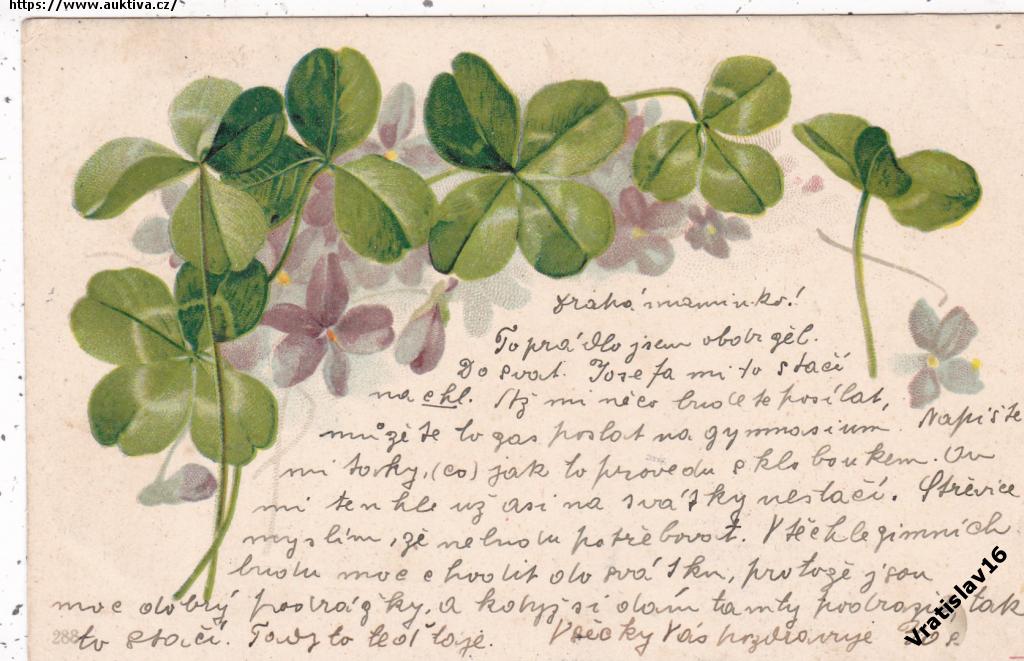 https://www.auktiva.cz/
Drahá maminko!
To prádlo jsem obdržěl.
Do svat. Josefa mi to stačí
na chl. Až mi něco budete posílat,
můžete to zas poslat na gymnasium. Napište
mi taky, (co) jak to provedu s kloboukem. On
mi tenhle už asi na svátky nestačí. Střevíce
myslím, že nebudu potřebovat. V těchle zimních
budu moc chodit do svátku, protože jsou
moc dobrý podrážky, a když si dám tamty podrazit, tak
to stačí. Tady to teď taje. Všecky Vás pozdravuje
288
Vratislav16